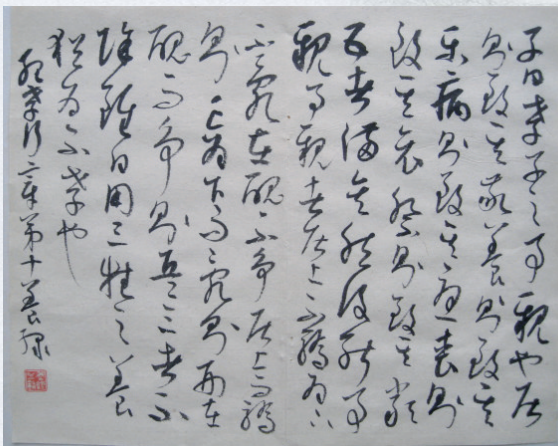 子曰孝子之事親也居
則致其敬養則致其
樂病則致其憂喪則
致其哀祭則致其嚴
五者備矣然後能事
親事親者居上不驕為下
不亂在醜不爭居上而驕
則亡為下而亂則刑在
醜而爭則兵三者不
除雖日用三牲之養
猶為不孝也
紀孝行章第十